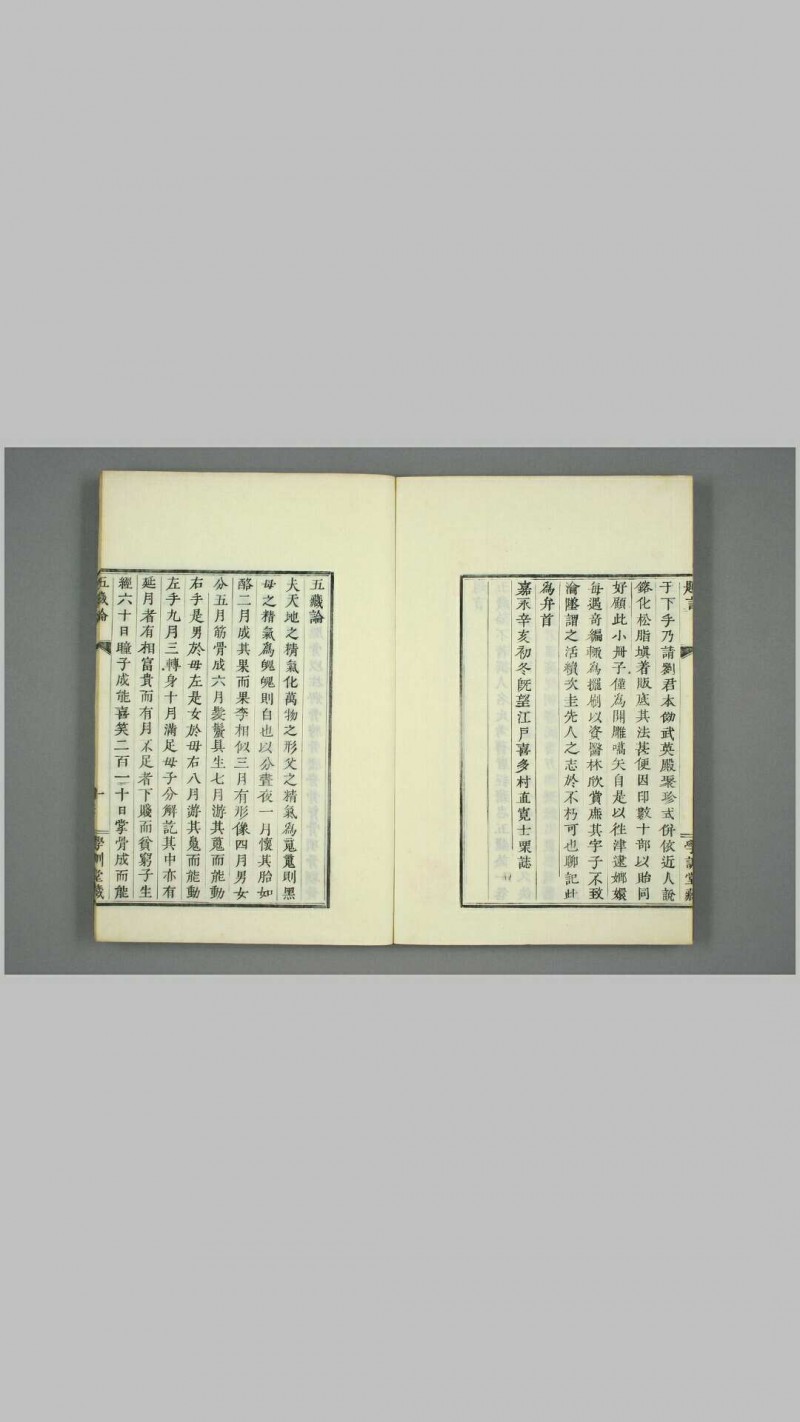 題言
學訓堂藏
于下乎乃請劉君本倣武英殿聚珍式併依近人說
鎔化松脂填着版底其法甚便因印數十部以貽同
好顧此小冊子僅為開雕嚆矢自是以徃津逮嫏嬛
每遇奇編輙為擺刷以資醫林欣賞庶其字子不致
淪墜謂之活續次圭先人之志於不朽可也聊記此
為弁首
嘉永辛亥初冬既望江戶喜多村直寬士栗誌
五藏論
夫天地之精氣化萬物之形父之精氣為䰟䰟則黑
母之精氣為魄魄則白也以分晝夜一月懷其胎如
酪二月成其果而果李相似三月有形像四月男女
分五月筋骨成六月髮鬢具生七月游其䰟而能動
右手是男於母左是女於母右八月游其魄而能動
左手九月三轉身十月滿足母子分解訖其中亦有
延月者有相富貴而有月不足者下賤而貧窮子生
經六十日瞳子成能喜笑二百一十日掌骨成而能
五藏論
一
學訓堂藏